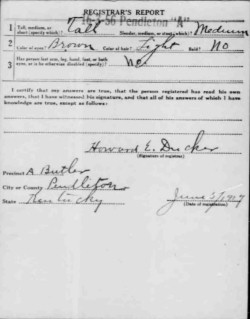 REGISTRAR'S REPORT
16-3-36 Pendleton "A"
1 Tall, medium, or short (specify which)? Tall Slender, medium, or stout (which)? Medium
2 Color of eyes? Brown Color of hair? Light Bald? No
3 Has person lost arm, leg, hand, foot, or both eyes, or is he otherwise disabled (specify)? No
I certify that my answers are true, that the person registered has read his own
answers, that I have witnessed his signature, and that all of his answers of which I have
knowledge are true, except as follows:
Howard E. Ducker
(Signature of registrar)
Precinct A Butler
City or County Pendleton
State Kentucky
(Date of registration)